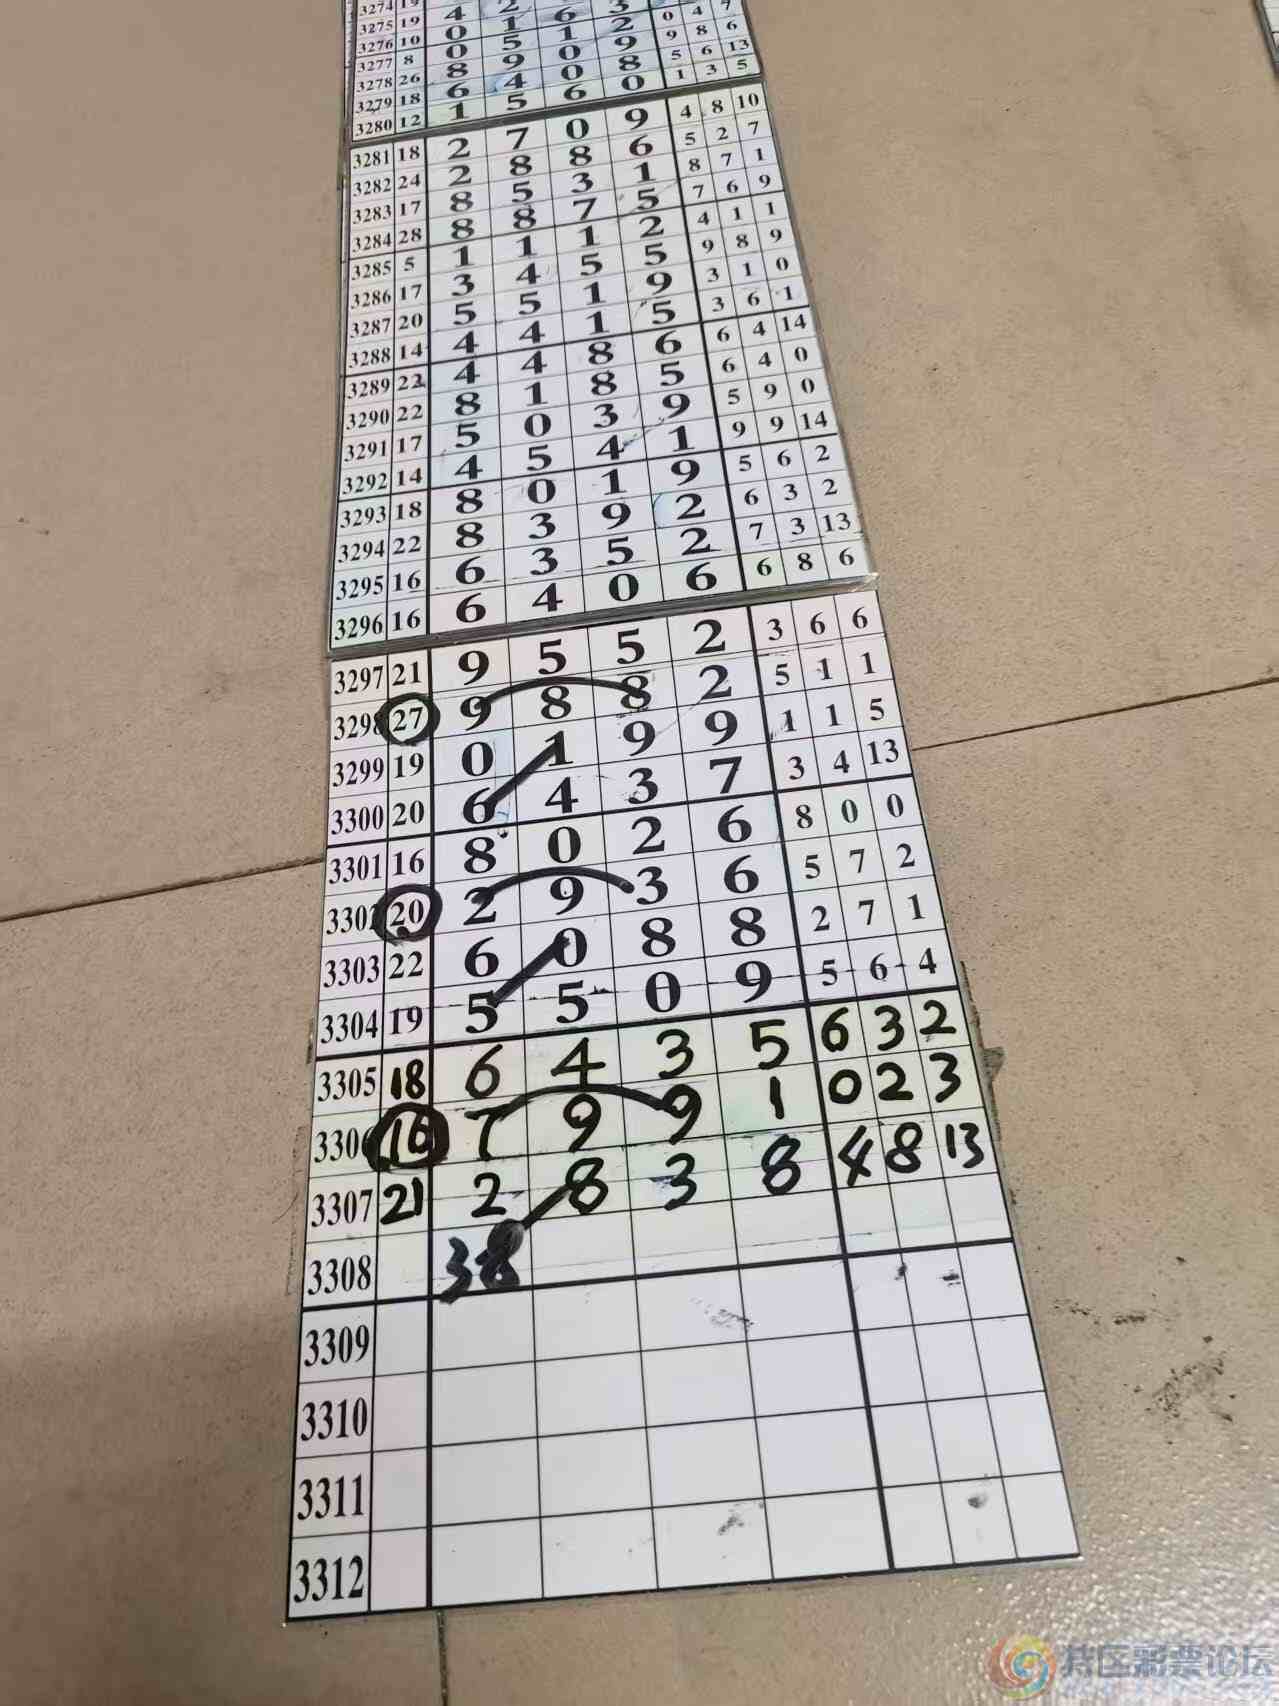 3274 19 4 2 6 3
3275 19 0 1 6 2 0 4 7
3276 10 0 5 1 9 8 6
3277 8 8 9 0 9 5 6 13
3278 26 6 4 0 8 1 3 5
3279 18 1 5 6 0
3280 12
3281 18 2 7 0 9 4 8 10
3282 24 2 8 8 6 5 2 7
3283 17 8 5 3 1 8 7 1
3284 28 8 8 7 5 7 6 9
3285 5 1 1 1 2 4 1 1
3286 17 3 4 5 5 9 8 9
3287 20 5 5 1 9 3 1 0
3288 14 4 4 1 5 3 6 1
3289 22 4 4 8 6 6 4 14
3290 22 8 1 8 5 6 4 0
3291 17 5 0 3 9 5 9 0
3292 14 4 5 4 1 9 9 14
3293 18 8 0 1 9 5 6 2
3294 22 8 3 9 2 6 3 2
3295 16 6 3 5 2 7 3 13
3296 16 6 4 0 6 6 8 6
3297 21 9 5 5 2 3 6 6
3298 27 9 8 8 2 5 1 1
3299 19 0 1 9 9 1 1 5
3300 20 6 4 3 7 3 4 13
3301 16 8 0 2 6 8 0 0
3302 20 2 9 3 6 5 7 2
3303 22 6 0 8 8 2 7 1
3304 19 5 5 0 9 5 6 4
3305 18 6 4 3 5 6 3 2
3306 16 7 9 9 1 0 2 3
3307 21 2 8 3 8 4 8 13
3308 38
3309
3310
3311
3312
彩票论坛